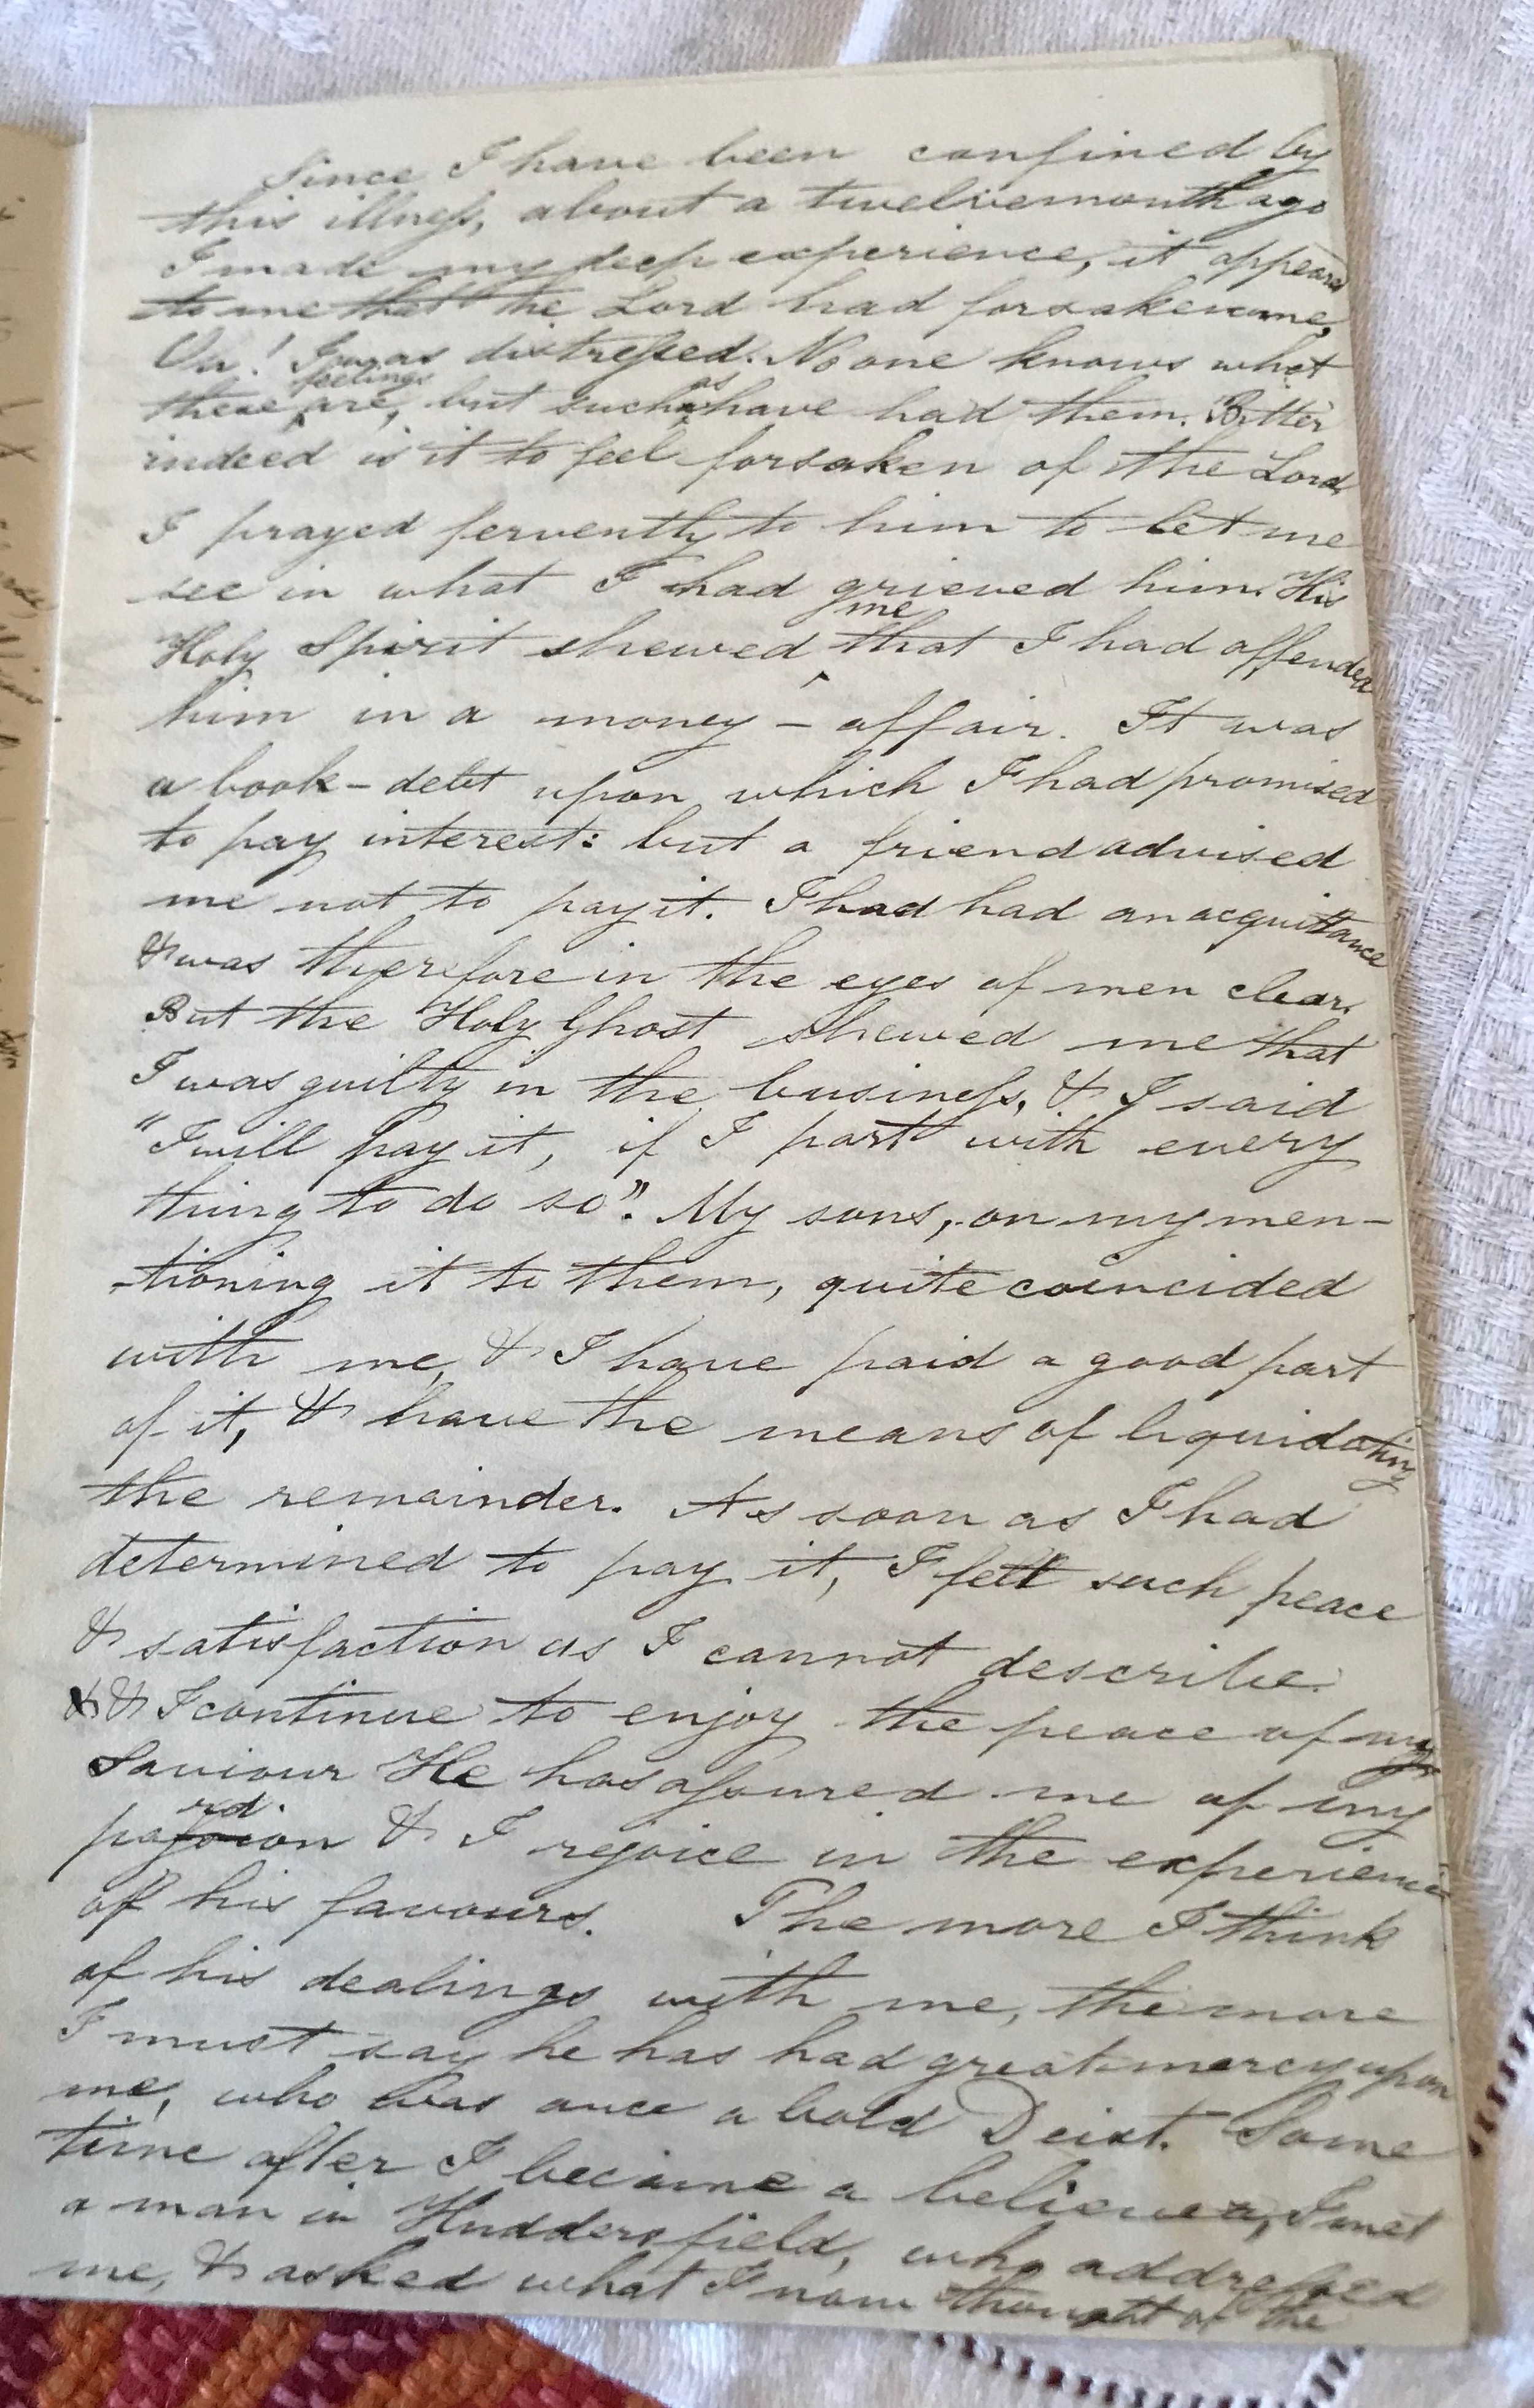 Since I have been confined by
this illness, about a twelvemonth ago
I made my deep experience, it appeared
to me that the Lord had forsaken me,
Oh! I was distressed. No one knows what
these feelings are, but such as have had them. Bitter
indeed is it to feel forsaken of the Lord,
I prayed fervently to him to let me
see in what I had grieved him. His
Holy Spirit shewed me that I had offended
him in a money - affair. It was
a book - debt upon which I had promised
to pay interest: but a friend advised
me not to pay it. I had had an acquittance
& was therefore in the eyes of men clear.
But the Holy Ghost shewed me that
I was guilty in the business, & I said
"I will pay it, if I part with every
thing to do so". My sons, on my men-
-tioning it to them, quite coincided
with me, & I have paid a good part
of it, & have the means of liquidating
the remainder. As soon as I had
determined to pay it, I felt such peace
& satisfaction as I cannot describe.
& I continue to enjoy the peace of my
Saviour He has assured me of my
pardon & I rejoice in the experience
of his favours. The more I think
of his dealings with me, the more
I must say he has had great mercy upon
me, who was once a bold Deist. Some
time after I became a believer, I met
a man in Huddersfield, who addressed
me, & asked what I now thought of the